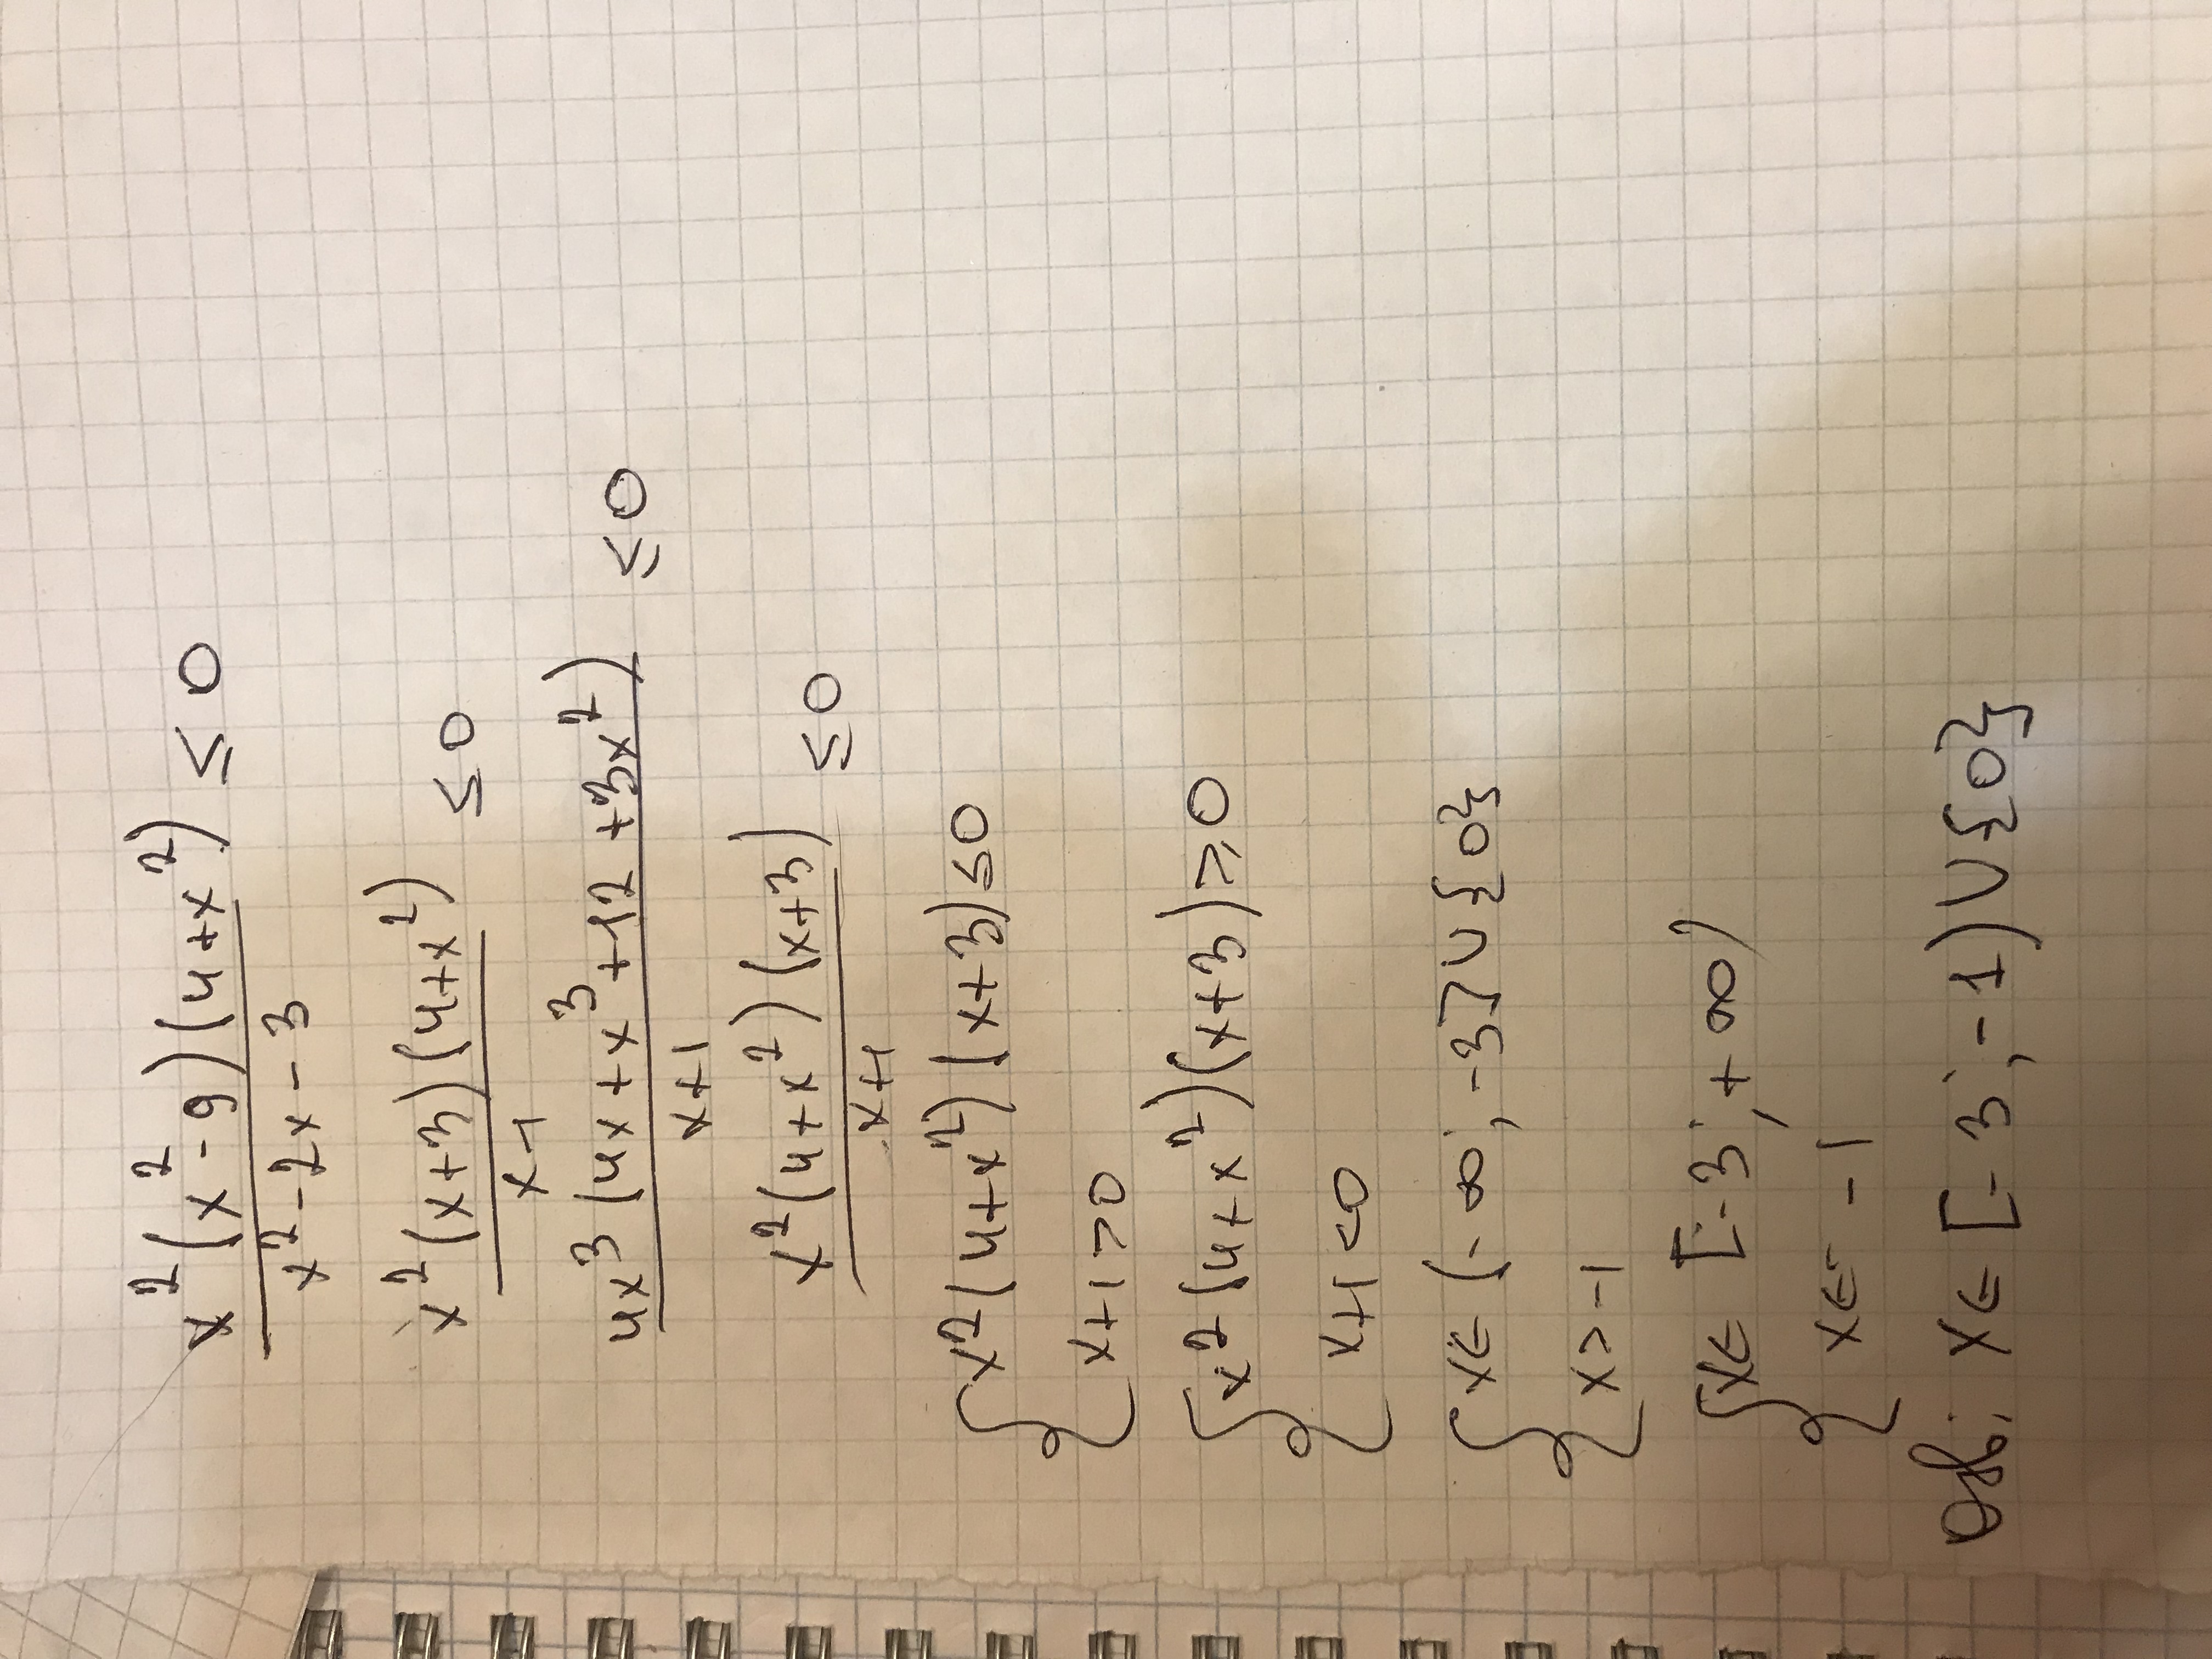 x²(x²-9)(4+x²) / x²-2x-3 ≤ 0
x²(x+3)(4+x²) / x-1 ≤ 0
4x³(4x+x³+12+3x²) / x+1 ≤ 0
x²(4+x²)(x+3) / x+1 ≤ 0
{ x²(4+x²)(x+3) ≤ 0
x+1 > 0
{ x²(4+x²)(x+3) ≥ 0
x+1 < 0
{ x ∈ (-∞; -3] ∪ {0}
x > -1
{ x ∈ [-3; +∞)
x ∈ -1
Отв: x ∈ [-3; -1) ∪ {0}